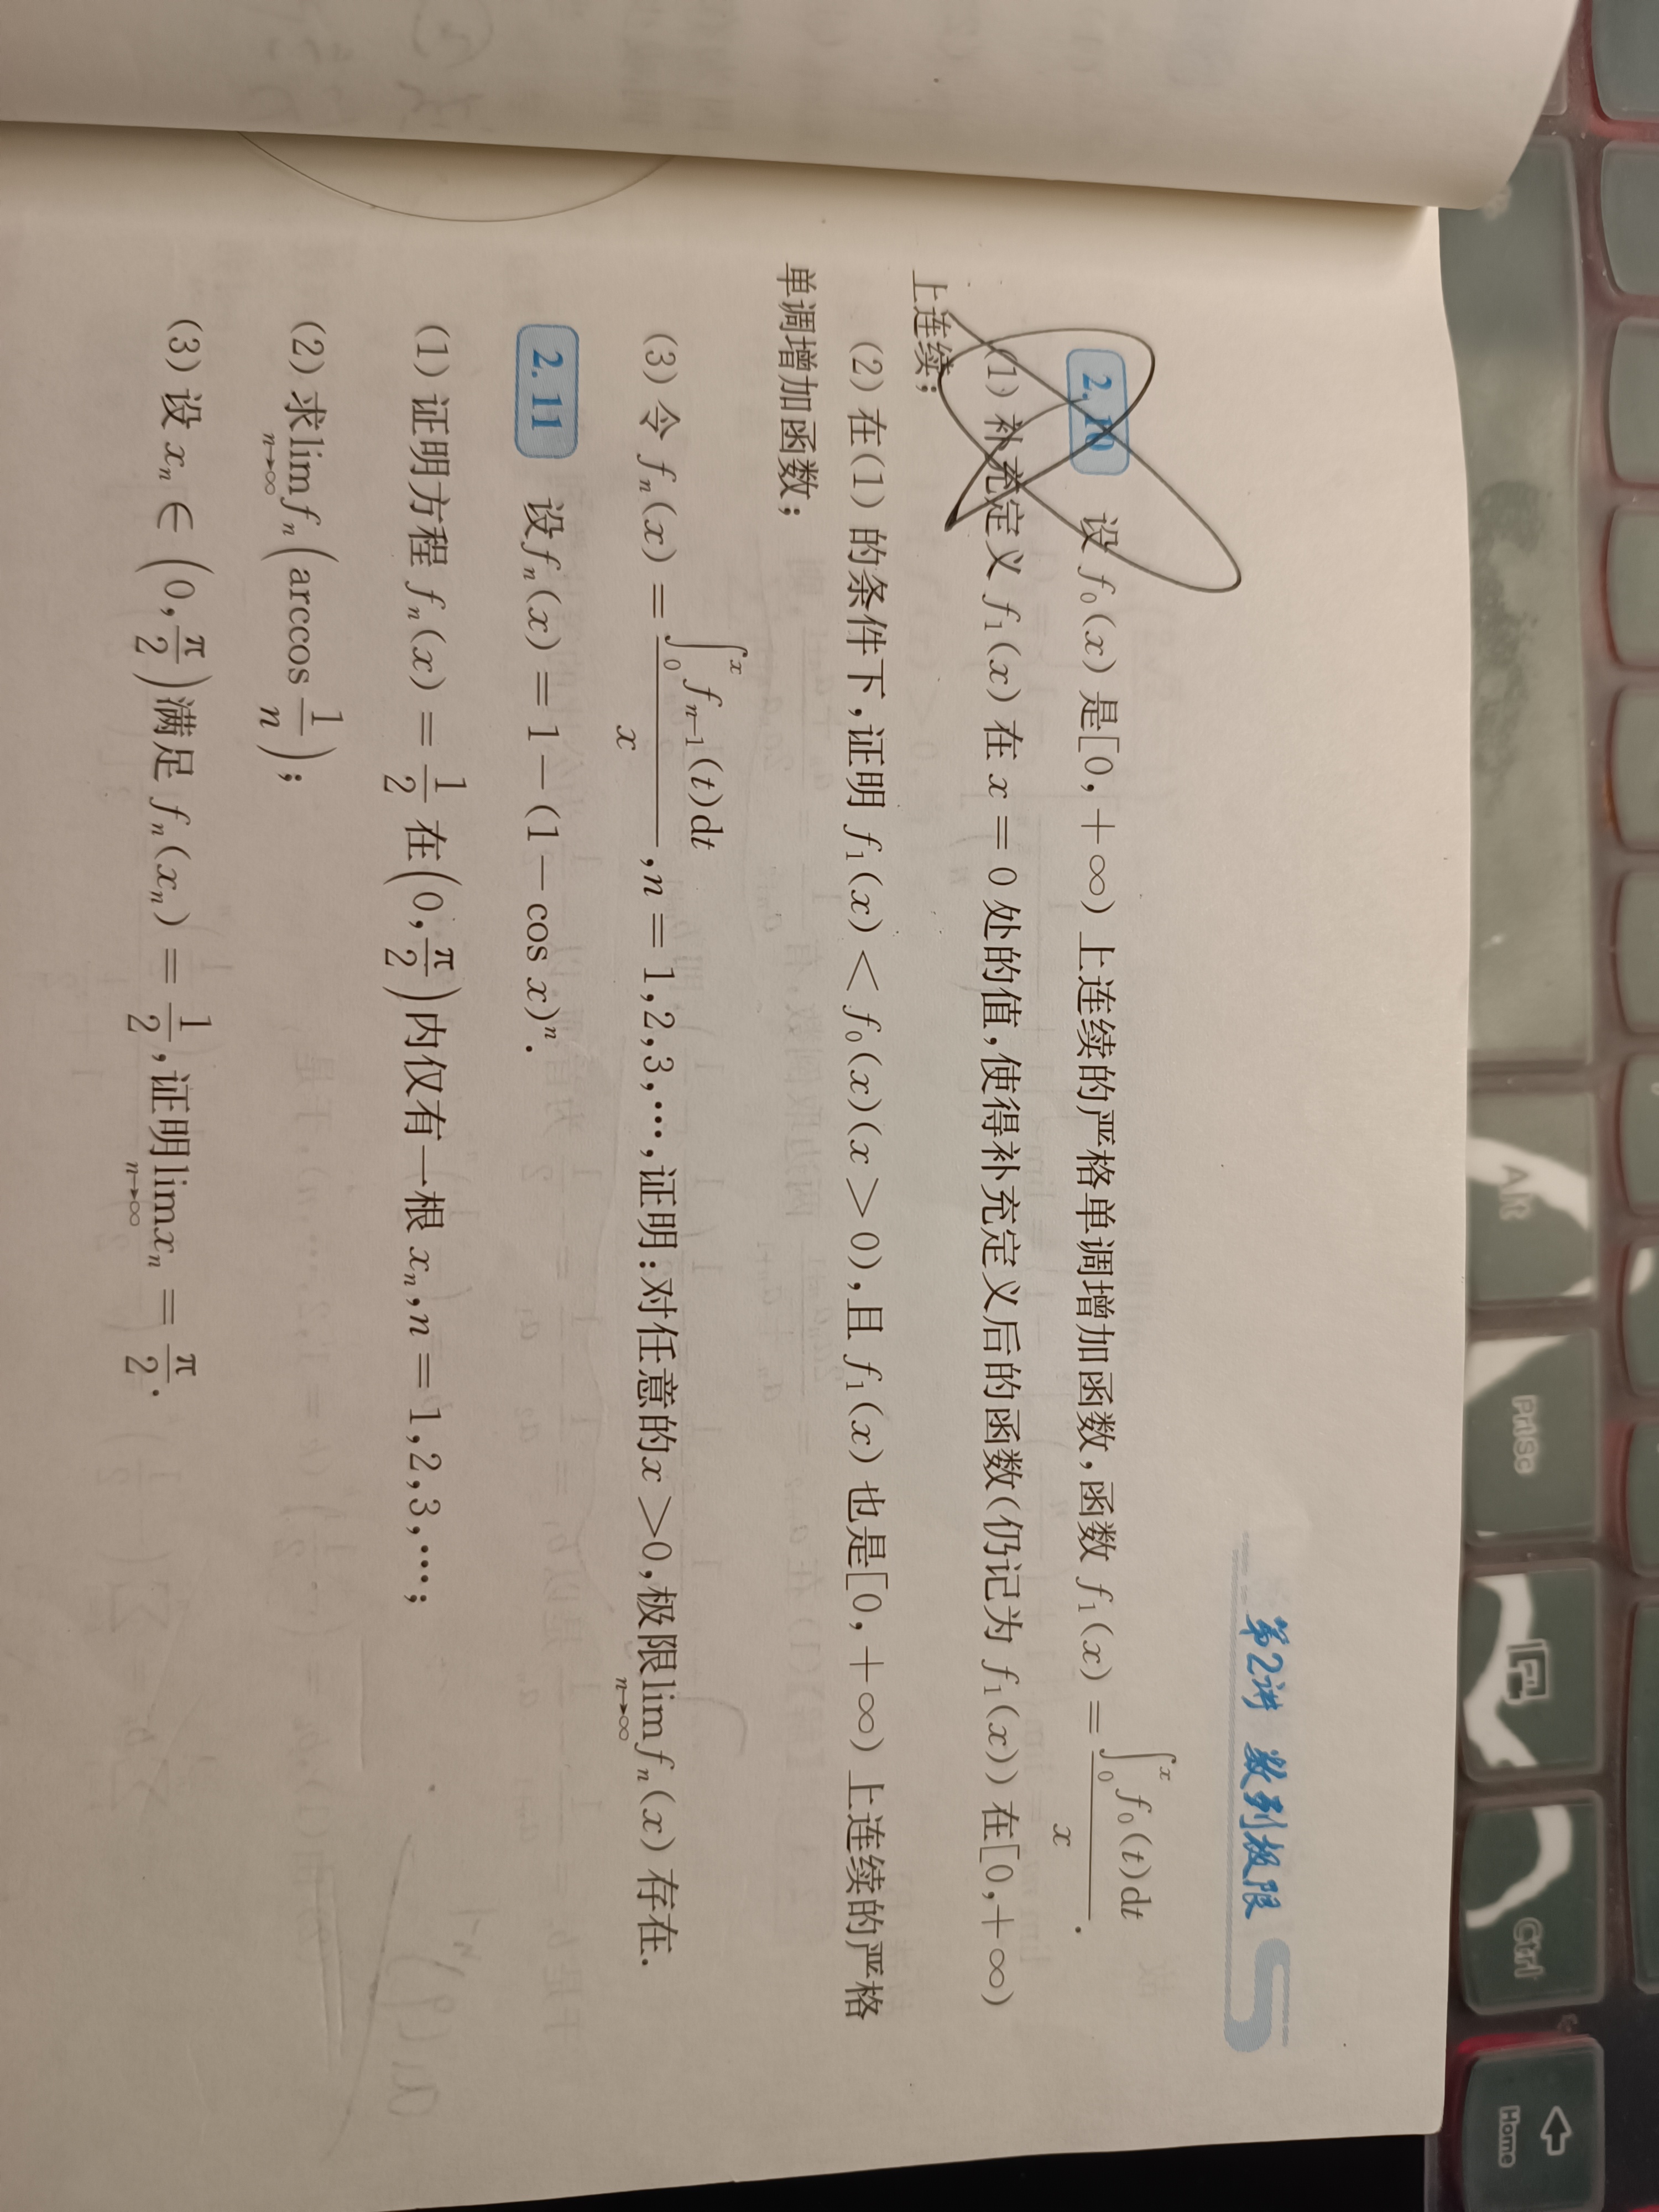 第2讲 数列极限
2.10 设 f₀(x) 是[0,+∞) 上连续的严格单调增加函数,函数 f₁(x) = \frac{∫₀ˣ f₀(t)dt}{x}.
(1) 补充定义 f₁(x) 在 x = 0 处的值,使得补充定义后的函数(仍记为 f₁(x)) 在[0,+∞)
上连续;
(2) 在(1) 的条件下,证明 f₁(x) < f₀(x)(x > 0),且 f₁(x) 也是[0,+∞) 上连续的严格
单调增加函数;
(3) 令 fₙ(x) = \frac{∫₀ˣ fₙ₋₁(t)dt}{x},n = 1,2,3,⋯,证明:对任意的x >0,极限\lim_{n→∞} fₙ(x) 存在.
2.11 设fₙ(x) = 1-(1-cos x)ⁿ.
(1) 证明方程 fₙ(x) = \frac{1}{2} 在(0,\frac{π}{2})内仅有一根 xₙ,n = 1,2,3,⋯;
(2) 求\lim_{n→∞} fₙ(arccos \frac{1}{n});
(3) 设 xₙ ∈ (0,\frac{π}{2})满足 fₙ(xₙ) = \frac{1}{2},证明\lim_{n→∞} xₙ = \frac{π}{2}.
Alt
PrtSc
Ctrl
Home